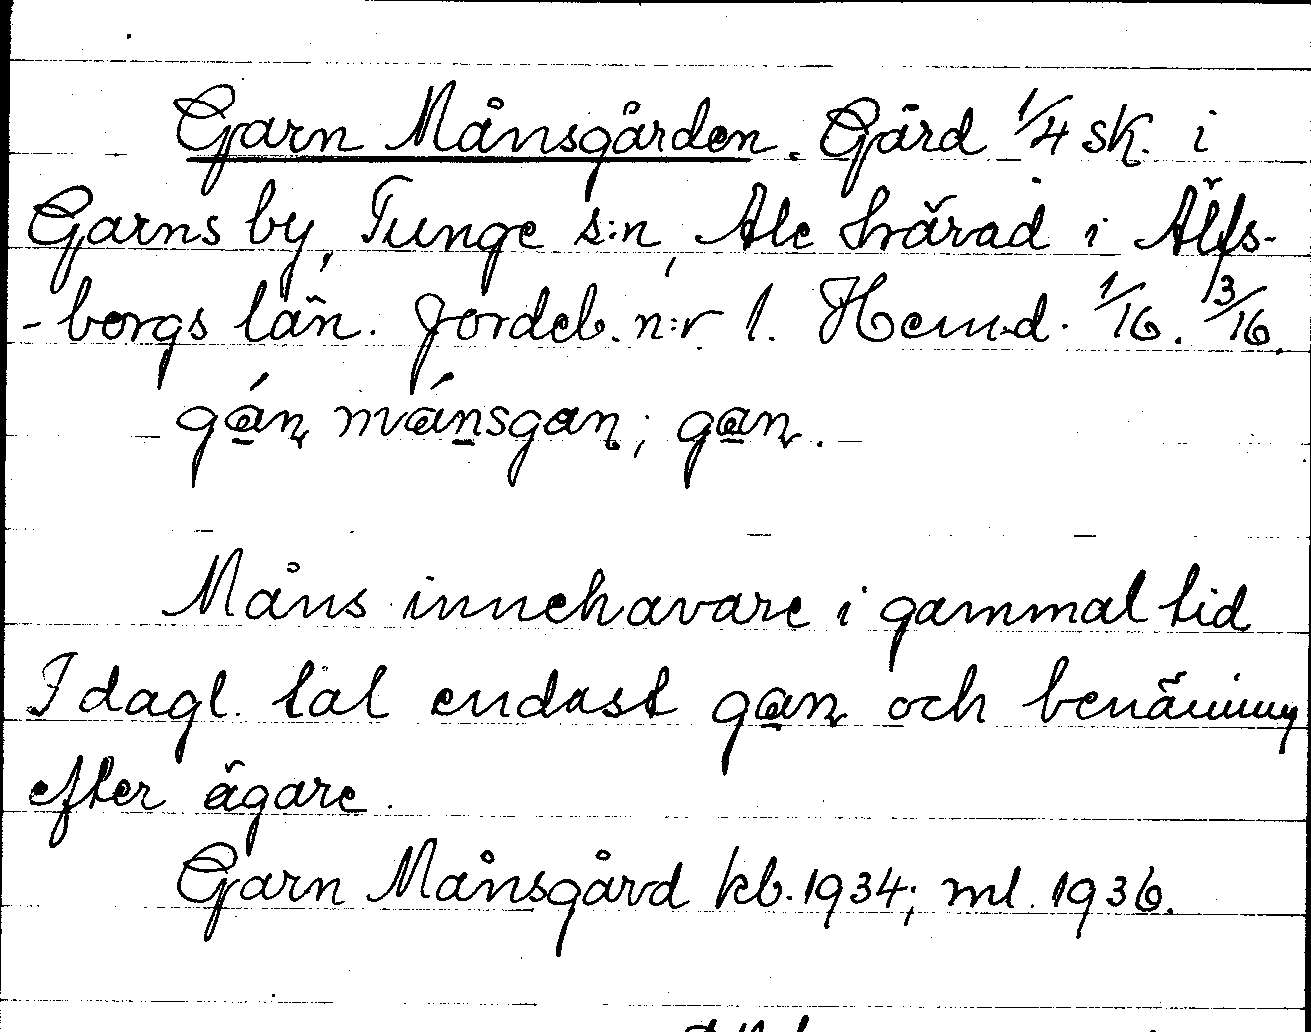 Garn Månsgården. Gård 1/4 sk. i
Garns by, Tunge s:n, Ale härad i Älfs-
-borgs län. Jordeb. n:r 1. Hemd. 1/16. 3/16.
gán mánsgan; gan.
Måns innehavare i gammal tid
I dagl. tal endast gan och benämning
efter ägare.
Garn Månsgård kb. 1934; ml. 1936.